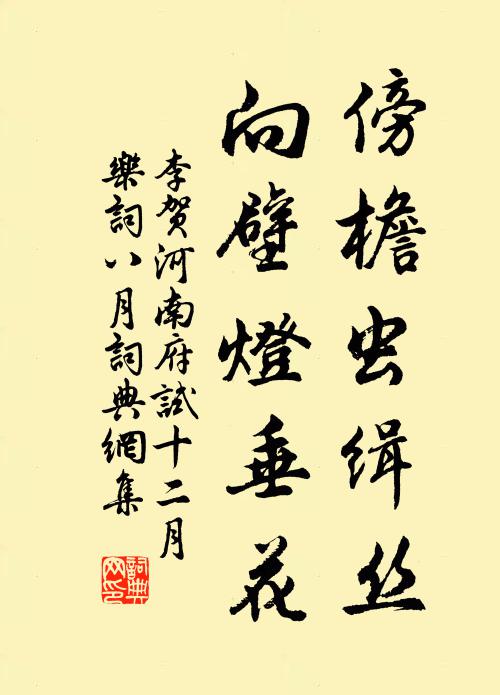 傍檐虫缉丝
向壁燈垂花
李贺河南府試十二月
樂詞八月詞典網集
詞典网印